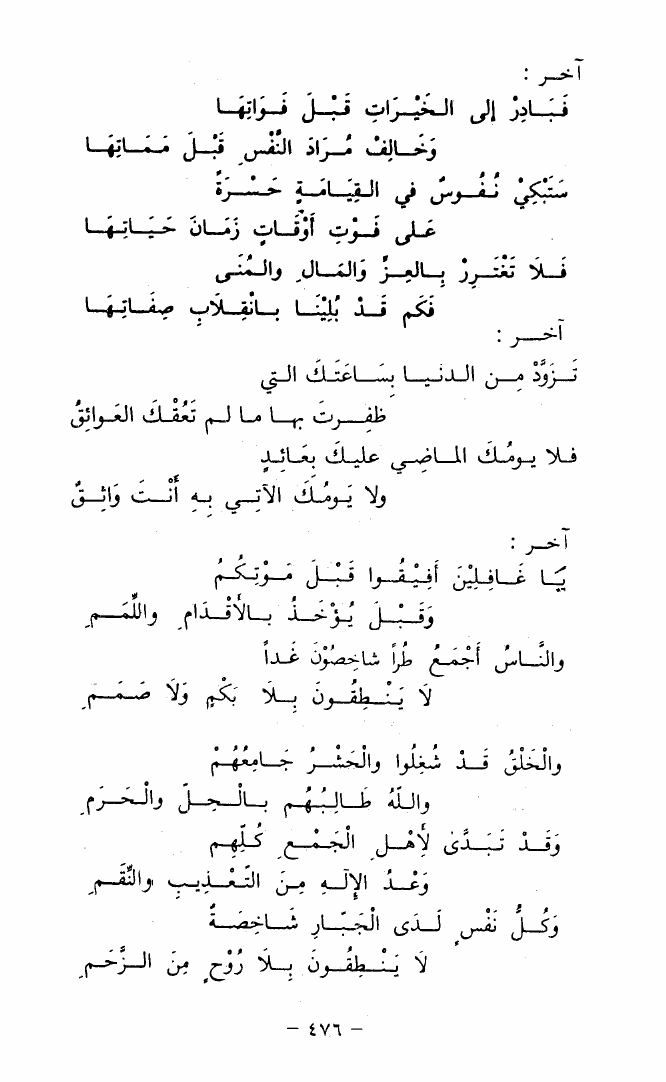 آخر :
فَبَادِرْ إلى الخَيْرَاتِ قَبْلَ فَوَاتِهَا
وَخَالِفْ مُرَادَ النَّفْسِ قَبْلَ مَمَاتِهَا
سَتَبْكِيْ نُفُوسٌ في القِيَامَةِ حَسْرَةً
عَلى فَوْتِ أَوْقَاتٍ زَمَانَ حَيَاتِهَا
فَلَا تَغْتَرِرْ بِالعِزِّ وَالمَالِ والمُنَى
فَكَم قَدْ بُلِيْنَا بِانْقِلَابِ صِفَاتِهَا
آخر :
تَزَوَّدْ مِن الدنيا بِسَاعَتَكَ التي
ظفِرتَ بها ما لم تَعُقْكَ العَوائِقُ
فلا يومُكَ الماضِي عليكَ بِعَائِدٍ
ولا يَومُكَ الآتِي بِهِ أَنْتَ وَاثِقٌ
آخر :
يَا غَافِلِيْنَ أَفِيْقُوا قَبْلَ مَوْتِكُمُ
وَقَبْلَ يُؤْخَذُ بِالأَقْدَامِ واللِّمَمِ
والنَّاسُ أَجْمَعُ طُراً شاخِصُوْنَ غَداً
لَا يَنْطِقُونَ بِلَا بَكْمٍ وَلَا صَمَمِ
والْخَلْقُ قَدْ شُغِلُوا والْحَشْرُ جَامِعُهُمْ
واللّهُ طَالِبُهُم بِالْحِلِّ والْحَرَمِ
وَقَدْ تَبَدَّىٰ لِأَهْلِ الْجَمْعِ كُلِّهِمِ
وَعْدُ الإِلَهِ مِنَ التَّعْذِيبِ والنِّقَمِ
وَكُلُّ نَفْسٍ لَدَى الْجَبَّارِ شَاخِصَةٌ
لَا يَنْطِقُونَ بِلَا رُوْحٍ مِنَ الزَّحَمِ
– ٤٧٦ –